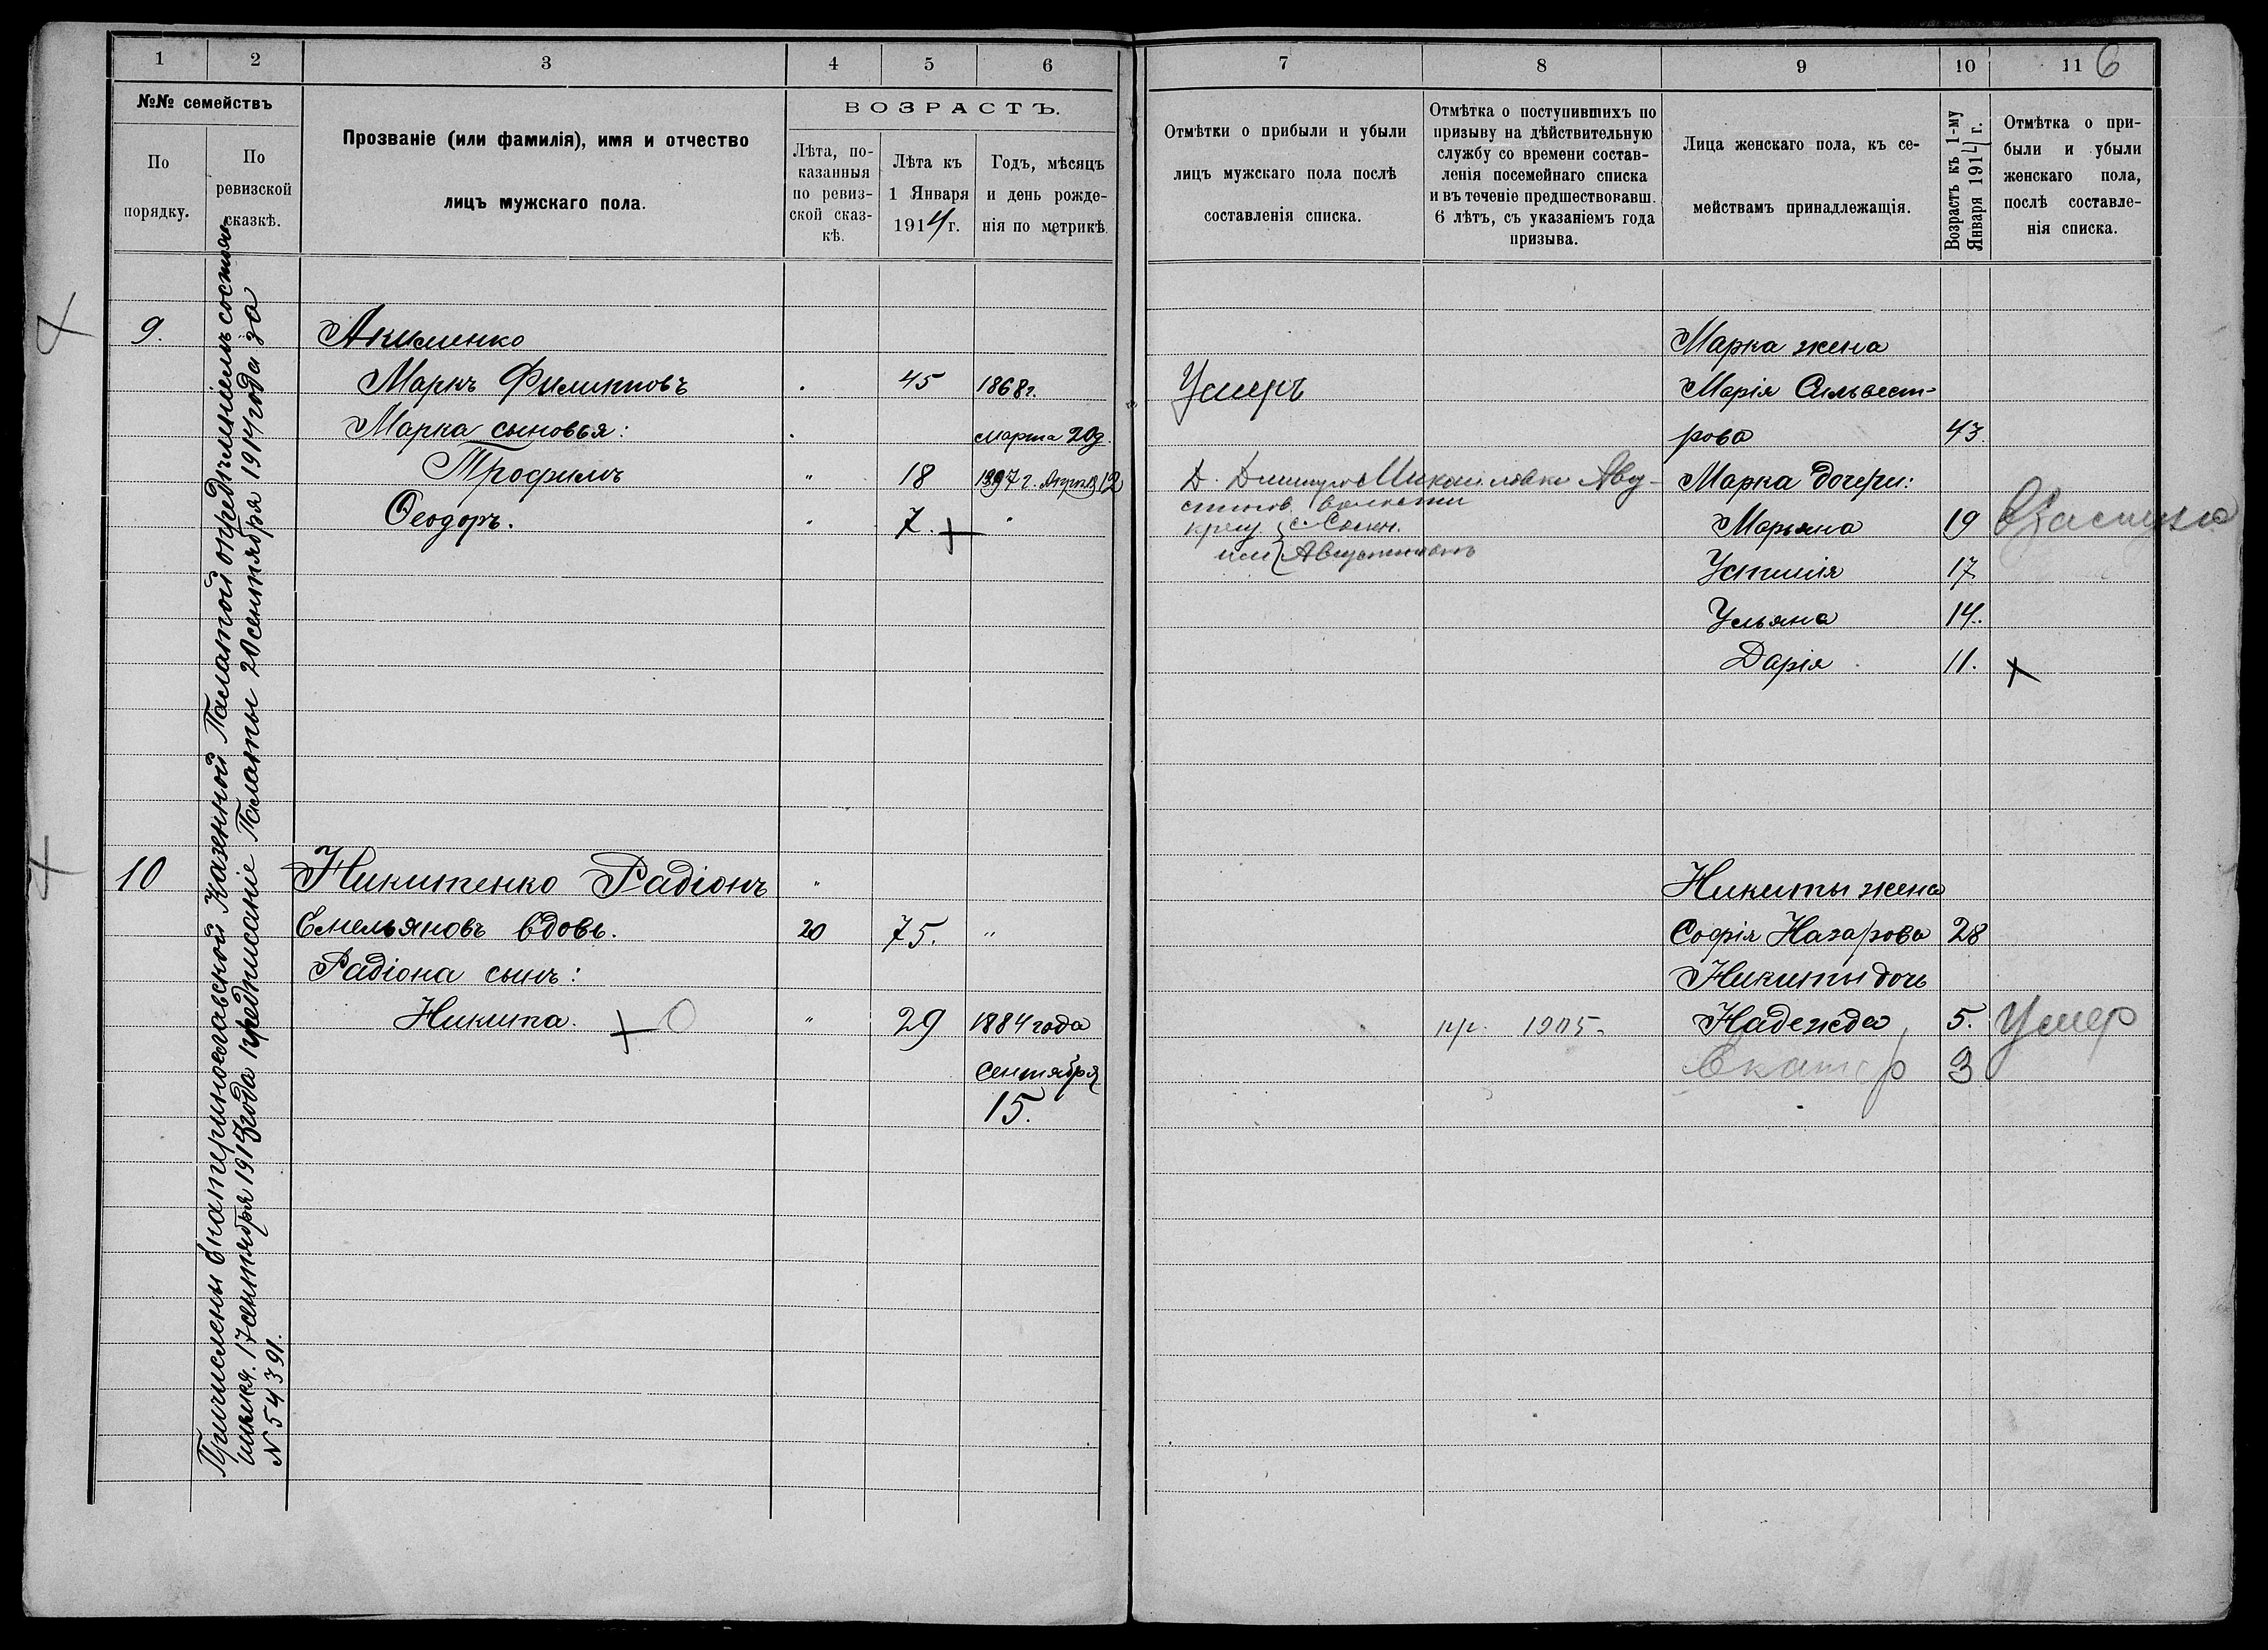 1
2
3
4
5
6
№№ семействъ
По порядку.
По ревизской сказкѣ.
Прозваніе (или фамилія), имя и отчество
лицъ мужскаго пола.
ВОЗРАСТЪ.
Лѣта, по-
казанныя
по ревиз-
ской сказ-
кѣ.
Лѣта къ
1 Января
1914 г.
Годъ, мѣсяцъ
и день рожде-
нія по метрикѣ.
Причислены Екатеринославской Казенной Палатой опредѣленіемъ состояв-
шимся 17 сентября 1913 года предписаніе Палаты 20 сентября 1914 года за
N 54391.
9.
Акименко
Маркъ Филипповъ
45
1868 г.
Марка сыновья:
марта 20 д.
Трофимъ
"
18
1897 г. Апрѣля 12
Ѳеодоръ.
"
7.
"
10
Никитенко Радіонъ
"
Емельяновъ вдовъ.
20
75.
"
Радіона сынъ:
Никита.
"
29
1884 года
Сентября
15.
7
8
9
10
11
6
Отмѣтки о прибыли и убыли
лицъ мужскаго пола послѣ
составленія списка.
Отмѣтка о поступившихъ по
призыву на дѣйствительную
службу со времени состав-
ленія посемейнаго списка
и въ теченіе предшествовавш.
6 лѣтъ, съ указаніемъ года
призыва.
Лица женскаго пола, къ се-
мействамъ принадлежащія.
Возрастъ къ 1-му
Января 1914 г.
Отмѣтка о при-
были и убыли
женскаго пола,
послѣ составле-
нія списка.
Марка жена
Умеръ
Марія Сильвест-
рова
43.
Д. Михайловки Авгу-
стинов. волости
Марка дочери:
Марьяна
19
Устинія
17
Ульяна
14.
Дарія
11.
Никиты жена
Софія Назарова
28
Никиты дочь
пр. 1905
Надежда
5.
Умер
Екатер
3